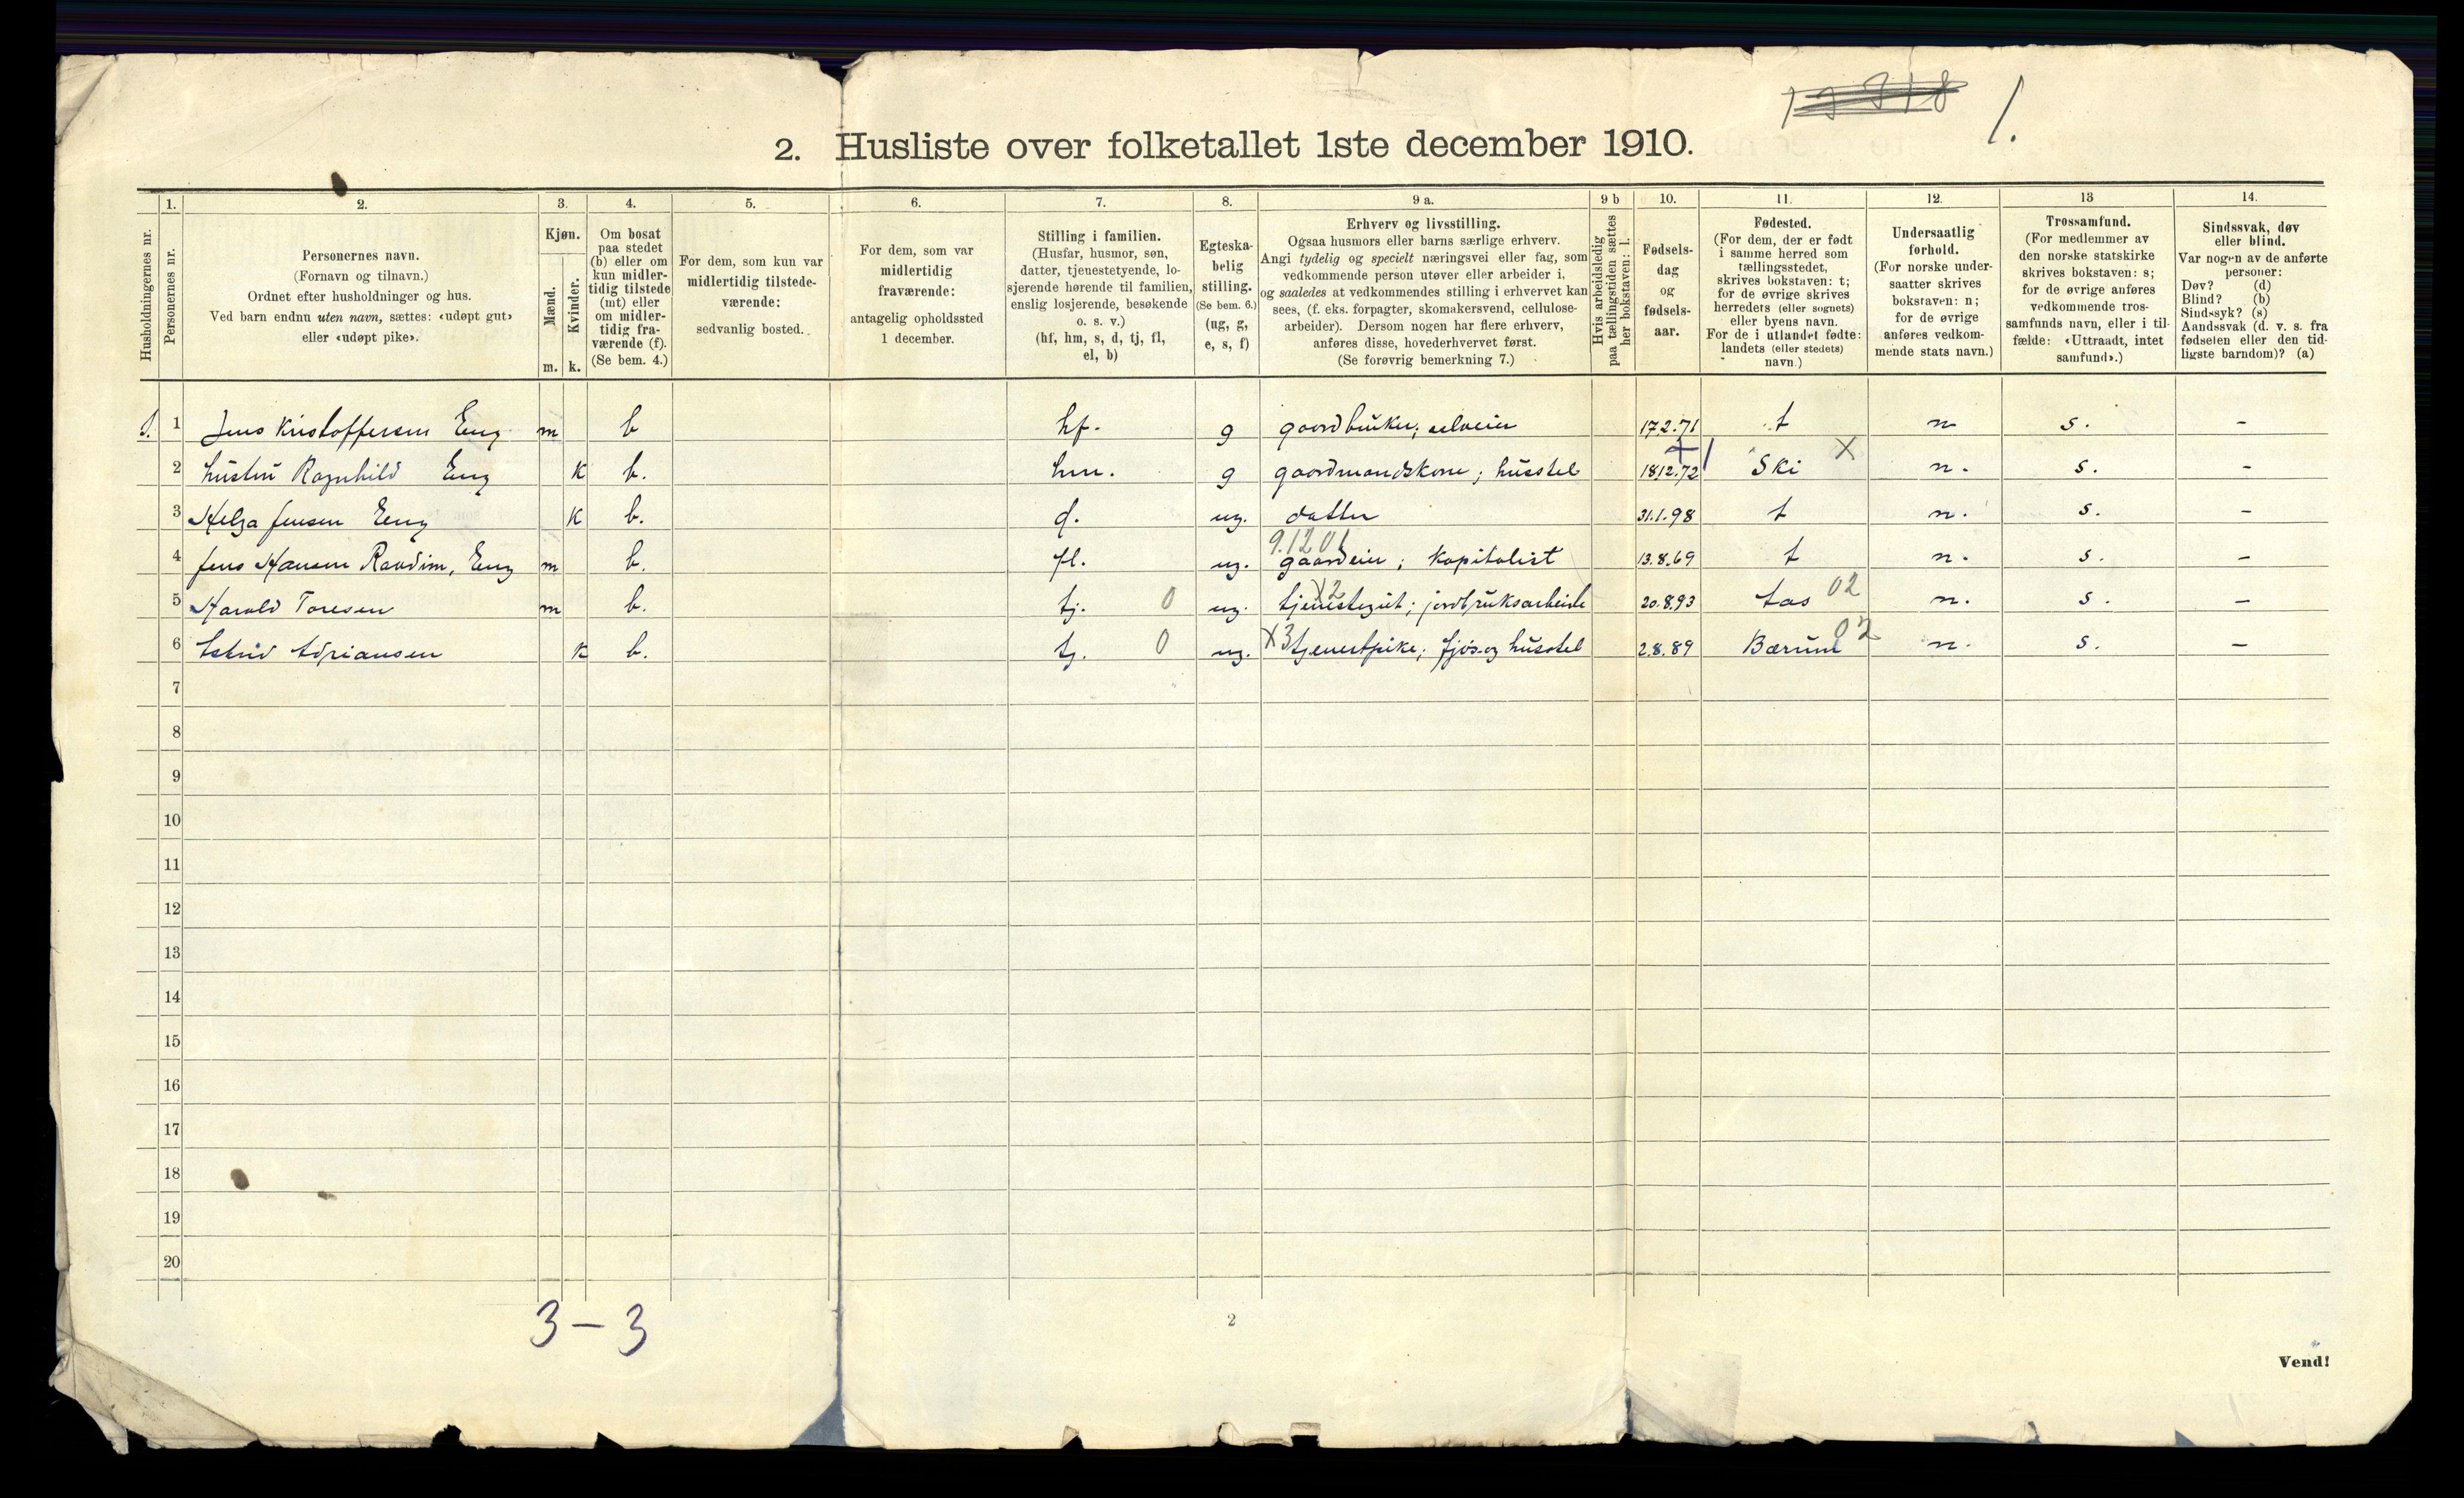 1.
2. Husliste over folketallet 1ste december 1910.
1. 2. 3. 4. 5. 6. 7. 8. 9 a. 9 b 10. 11. 12. 13 14.
Husholdningernes nr.
Personernes nr.
Personernes navn.
(Fornavn og tilnavn.)
Ordnet efter husholdninger og hus.
Ved barn endnu uten navn, sættes: «udøpt gut»
eller «udøpt pike».
Kjøn.
Mænd.
m.
Kvinder.
k.
Om bosat
paa stedet
(b) eller om
kun midler-
tidig tilstede
(mt) eller
om midler-
tidig fra-
værende (f).
(Se bem. 4.)
For dem, som kun var
midlertidig tilstede-
værende:
sedvanlig bosted.
For dem, som var
midlertidig
fraværende:
antagelig opholdssted
1 december.
Stilling i familien.
(Husfar, husmor, søn,
datter, tjenestetyende, lo-
sjerende hørende til familien,
enslig losjerende, besøkende
o. s. v.)
(hf, hm, s, d, tj, fl,
el, b)
Egteska-
belig
stilling.
(Se bem. 6.)
(ug, g,
e, s, f)
Erhverv og livsstilling.
Ogsaa husmors eller barns særlige erhverv.
Angi tydelig og specielt næringsvei eller fag, som
vedkommende person utøver eller arbeider i,
og saaledes at vedkommendes stilling i erhvervet kan
sees, (f. eks. forpagter, skomakersvend, cellulose-
arbeider). Dersom nogen har flere erhverv,
anføres disse, hovederhvervet først.
(Se forøvrig bemerkning 7.)
Hvis arbeidsledig
paa tællingstiden sættes
her bokstaven: l.
Fødsels-
dag
og
fødsels-
aar.
Fødested.
(For dem, der er født
i samme herred som
tællingsstedet,
skrives bokstaven: t;
for de øvrige skrives
herreders (eller sognets)
eller byens navn.
For de i utlandet fødte:
landets (eller stedets)
navn.)
Undersaatlig
forhold.
(For norske under-
saatter skrives
bokstaven: n;
for de øvrige
anføres vedkom-
mende stats navn.)
Trossamfund.
(For medlemmer av
den norske statskirke
skrives bokstaven: s;
for de øvrige anføres
vedkommende tros-
samfunds navn, eller i til-
fælde: «Uttraadt, intet
samfund».)
Sindssvak, døv
eller blind.
Var nogen av de anførte
personer:
Døv? (d)
Blind? (b)
Sindssyk? (s)
Aandssvak (d. v. s. fra
fødselen eller den tid-
ligste barndom)? (a)
1. 1 Jens Kristoffersen Eng m b hf. g gaardbruker; selveier 17.2.71 t n s. –
2 hustru Ragnhild Eng k b. hm. g gaardmandskone; husstel 18.12.72 Ski X n. s. –
3 Helga Jensen Eng k b. d. ug. datter 31.1.98 t n. s. –
9.12 01
4 Jens Hansen Eng m b. fl. ug. gaardeier; kapitalist 13.8.69 t n. s. –
5 Harald Toresen m b. tj. 0 ug. tjenestegut; jordbruksarbeide 20.8.93 02 n. s. –
6 Astrid Adriansen k b. tj. 0 ug. X3 tjenestpike; fjøs- og husstel 2.8.89 Bærum 02 n. s. –
7
8
9
10
11
12
13
14
15
16
17
18
19
20
3 – 3
2
Vend!